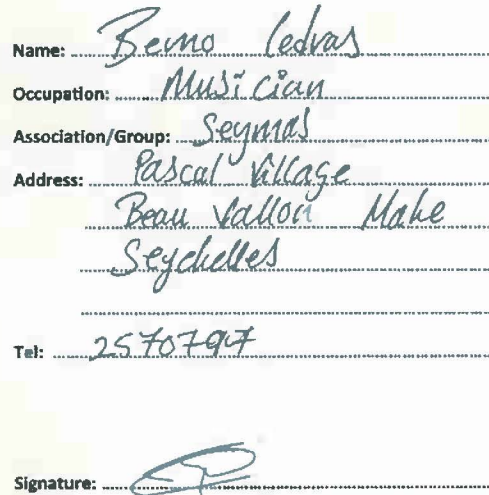 Name: Berno Ledras
Occupation: Musician
Association/Group: Seymas
Address: Pascal Village
Beau Vallon Mahe
Seychelles
Tel: 2570797
Signature: